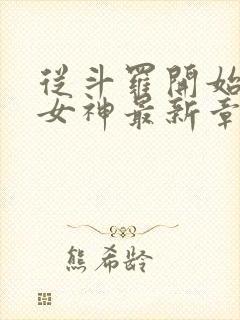 從斗羅開始
女神最新章
熊希龄